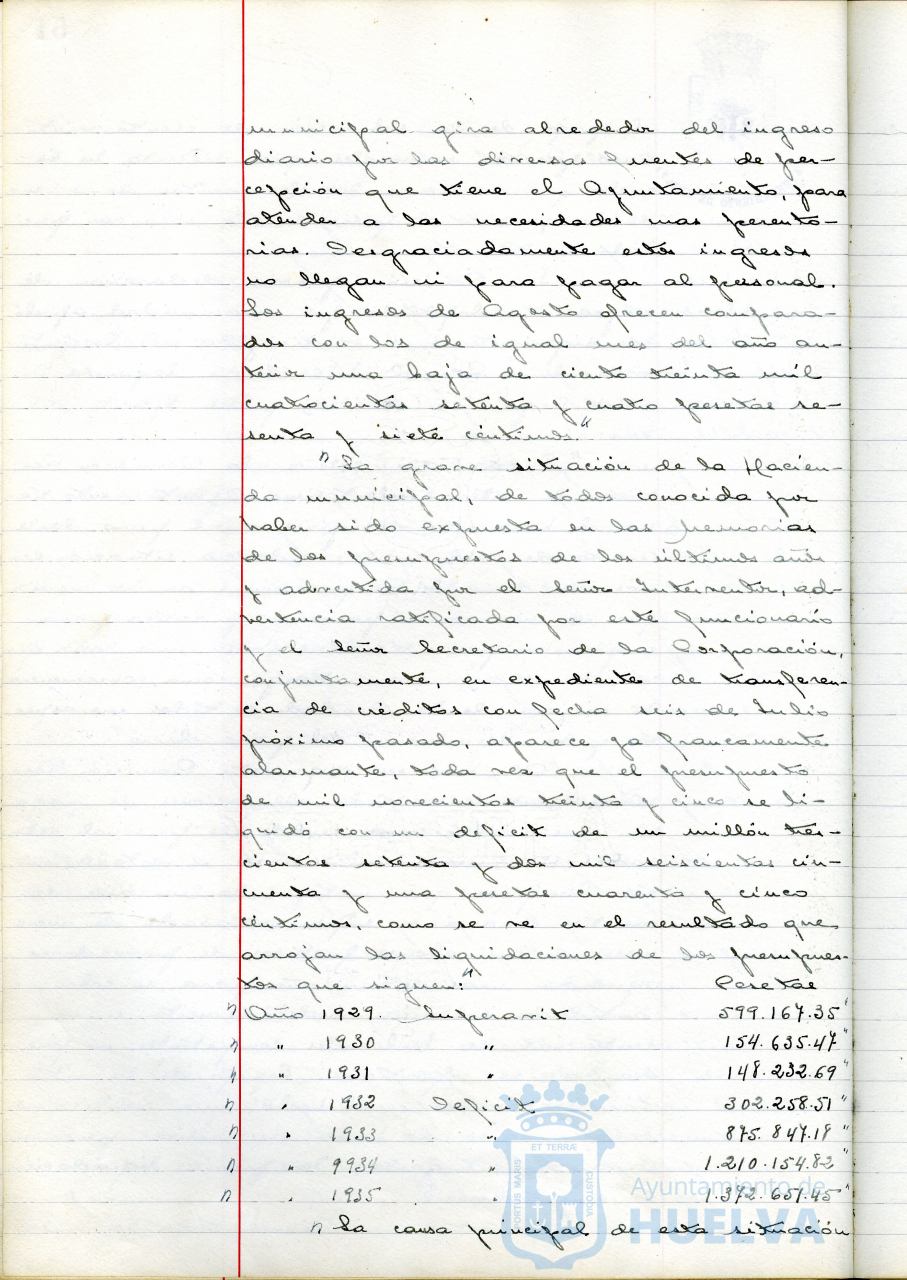 municipal gira alrededor del ingreso
diario por las diversas fuentes de per-
cepción que tiene el Ayuntamiento, para
atender a las necesidades mas perento-
rias. Desgraciadamente estos ingresos
no llegan ni para pagar al personal.
Los ingresos de Agosto ofrecen compara-
dos con los de igual mes del año an-
terior una baja de ciento treinta mil
cuatrocientas setenta y cuatro pesetas se-
senta y siete céntimos."
"La grave situación de la Hacien-
da municipal, de todos conocida por
haber sido expuesta en las memorias
de los presupuestos de los últimos años
y advertida por el señor Interventor, ad-
vertencia ratificada por este funcionario
y el señor Secretario de la Corporación,
conjuntamente, en expediente de transferen-
cia de créditos con fecha seis de Julio
próximo pasado, aparece ya francamente
alarmante, toda vez que el presupuesto
de mil novecientos treinta y cinco se li-
quidó con un deficit de un millón tres-
cientas setenta y dos mil seiscientas cin-
cuenta y una pesetas cuarenta y cinco
céntimos, como se ve en el resultado que
arrojan las liquidaciones de los presupues-
tos que siguen:" Pesetas
" Año 1929. Superavit 599.167.35"
" " 1930 " 154.635.47"
" " 1931 " 148.232.69"
" " 1932 Deficit 302.258.51"
" " 1933 " 875.847.19"
" " 9934 " 1.210.154.82"
" " 1935 " 1.372.651.45"
" La causa principal de esta situación
ET TERRÆ
PORTUS MARIS
CUSTODIA
Ayuntamiento de
HUELVA